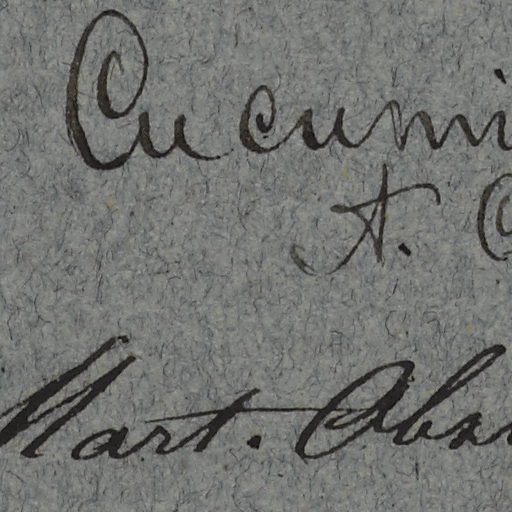 Cucumi
A. C
Mart. Obs